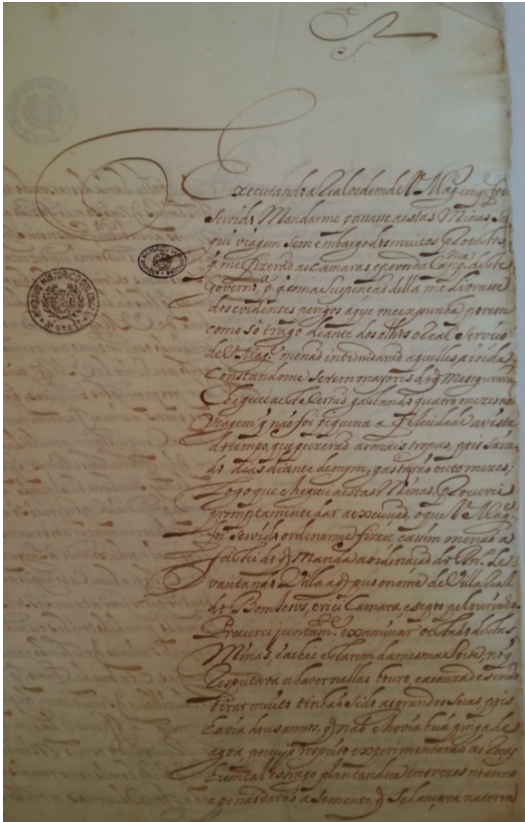 Sr
Executando a Real ordem de V. Magde em q̃ foi
Servido Mandarme passase a estas Minas, Se
gui viagem sem embargo dos muitos protestos
q̃ me fizerão as Camaras e povo da Capnia deste
Governo, pa q̃ com a suspenção della me livrase
dos evidentes perigos a que me expunha, porem
como só trago diante dos olhos o Real Serviço
de V. Magde me não intimidarão aquelles, ainda
constandome serem mayores do q̃ me seguravão
Cheguei a este Certão gastando quatro mezes na
viagem, q̃ não foi piquena a felicidade a vista
do tempo, que fizerão as mais tropas, pois
dias diante de mym, gastarão outo mezes;
Logo que cheguei a estas Minas, procurei
promptamente dar a execução, o que V. Magde
foi Servido ordenarme fizese, e asim menão a
do q̃ Manda a ordenação do Rno. Le
vantando Villa a q̃ pus o nome de Villa Real
do Bom Jesus, erigi Camara, e elegi pelourinho
Procurei juntamte examinar o estado destas
Minas, e achei estarem da mesma sorte, nos
disputava a haver nellas ouro, e a cauza de se não
tirar muito tinha sido as grandes secas, pois
havia dous annos, q̃ não chovia huã pinga de
agoa, por cujo respeito experimentarão as Roças
total estrago, plantandose tres vezes no anno
apenas darão a semente q̃ se lançava na terra
ARCHIVO HISTORICO COLONIAL